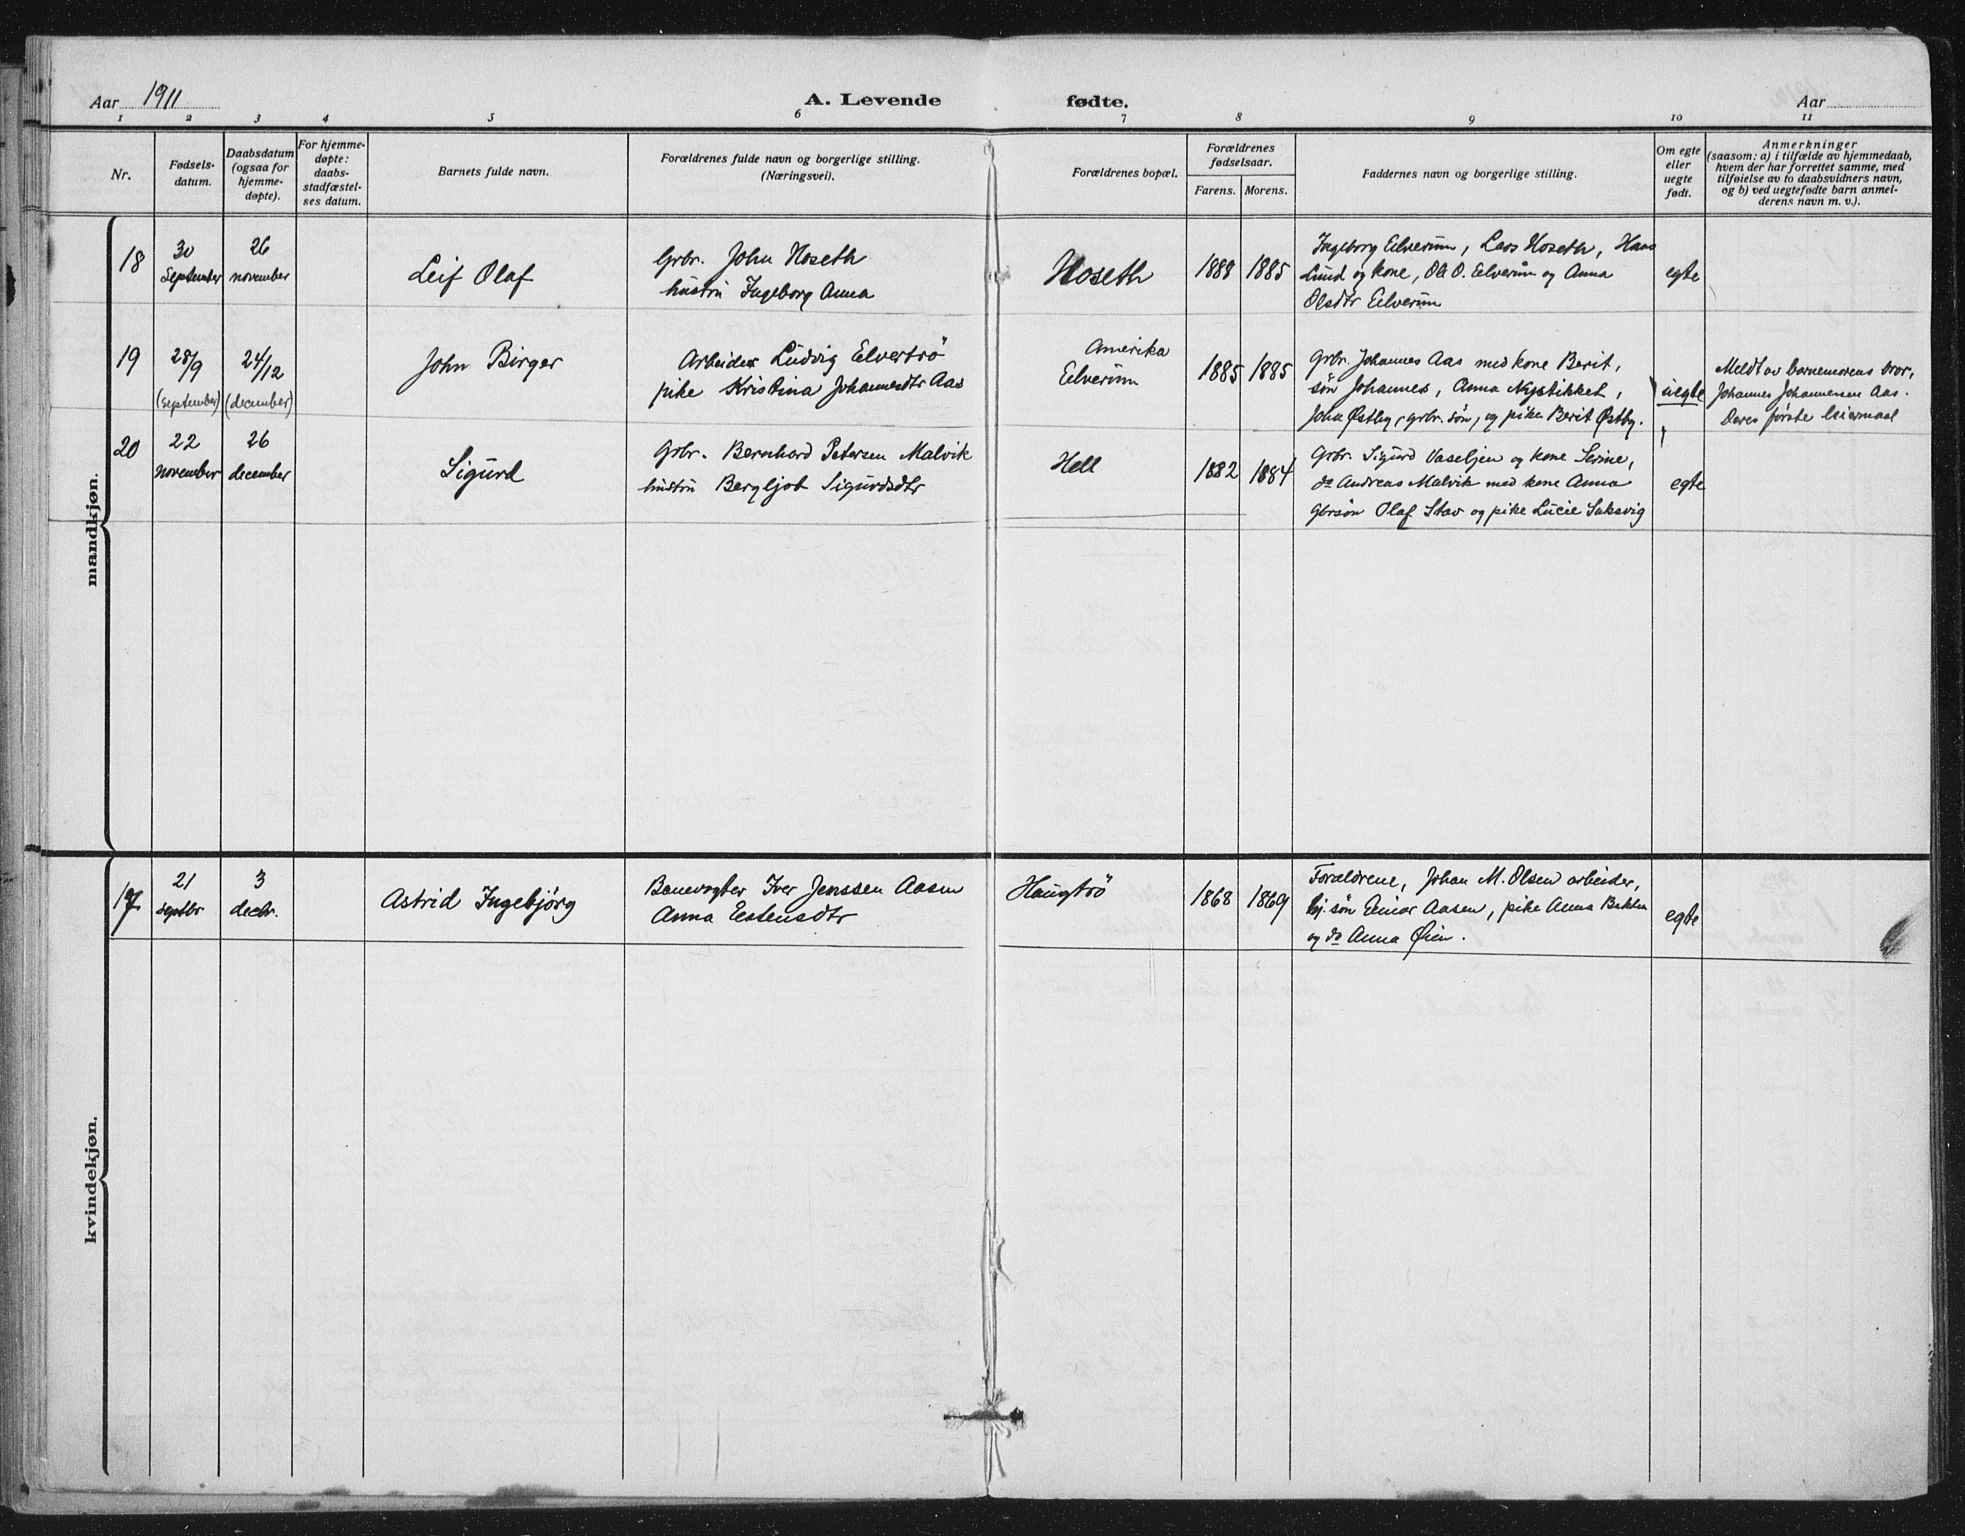 Aar 1911
A. Levende fødte.
Aar
1 2 3 4 5 6 7 8 9 10 11
Nr.
Fødsels-
datum.
Daabsdatum
(ogsaa for
hjemme-
døpte).
For hjemme-
døpte:
daabs-
stadfæstel-
ses datum.
Barnets fulde navn.
Forældrenes fulde navn og borgerlige stilling.
(Næringsvei).
Forældrenes bopæl.
Forældrenes
fødselsaar.
Farens. Morens.
Faddernes navn og borgerlige stilling.
Om egte
eller
uegte
født.
Anmerkninger
(saasom: a) i tilfælde av hjemmedaab,
hvem der har forrettet samme, med
tilføielse av to daabsvidners navn,
og b) ved uegtefødte barn anmel-
derens navn m. v.).
mandkjøn.
18
30
September
26
november
Leif Olaf
Grbr. John Hoseth
hustru Ingeborg Anna
Hoseth
1888 1885
Ingeborg Eelverum, Lars Hoseth, Hans
Lund og kone, Ole O. Eelverum og Anna
Olsdtr Eelverum
egte
19
28/9
(september)
24/12
(december)
John Birger
Arbeider Ludvig Elvertrö
pike Kristina Johannesdtr Aas
Amerika
Eelverum
1885 1885
Grbr. Johannes Aas med kone Berit,
søn Johannes, Anna Nystikket,
John Østby, grbr. søn, og pike Berit Østby.
uegte
Meldt av barnemorens bror,
Johannes Johannesen Aas.
Deres første leiermaal
20
22
november
26
december
Sigurd
Grbr. Bernhard Petersen Malvik
hustru Bergljot Sigurdsdtr
Hell
1882 1884
Grbr. Sigurd Vaseljen og kone Serine,
do Andreas Malvik med kone Anna
gbrsøn Olaf Stav og pike Lucie Saksvig
egte
kvindekjøn.
17
21
septbr
3
decbr.
Astrid Ingebjørg
Banevogter Iver Jenssen Aasen
Anna Estensdtr
Haugtrö
1868 1869
Forældrene, Johan M. Olsen arbeider,
søn Einar Aasen, pike Anna
og do Anna Øien.
egte